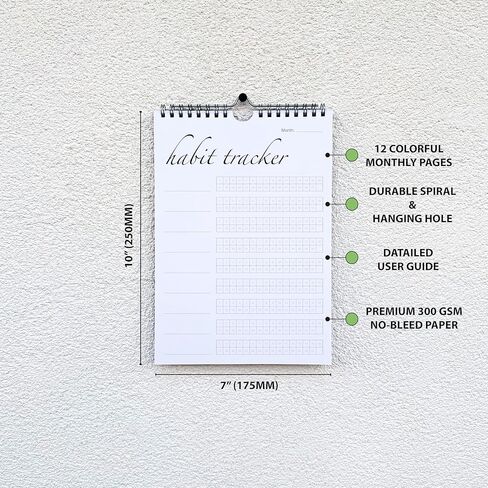 Month:
habit tracker
12 COLORFUL
MONTHLY PAGES
DURABLE SPIRAL
&
HANGING HOLE
DATAILED
USER GUIDE
PREMIUM 300 GSM
NO-BLEED PAPER
10" (250MM)
7" (175MM)